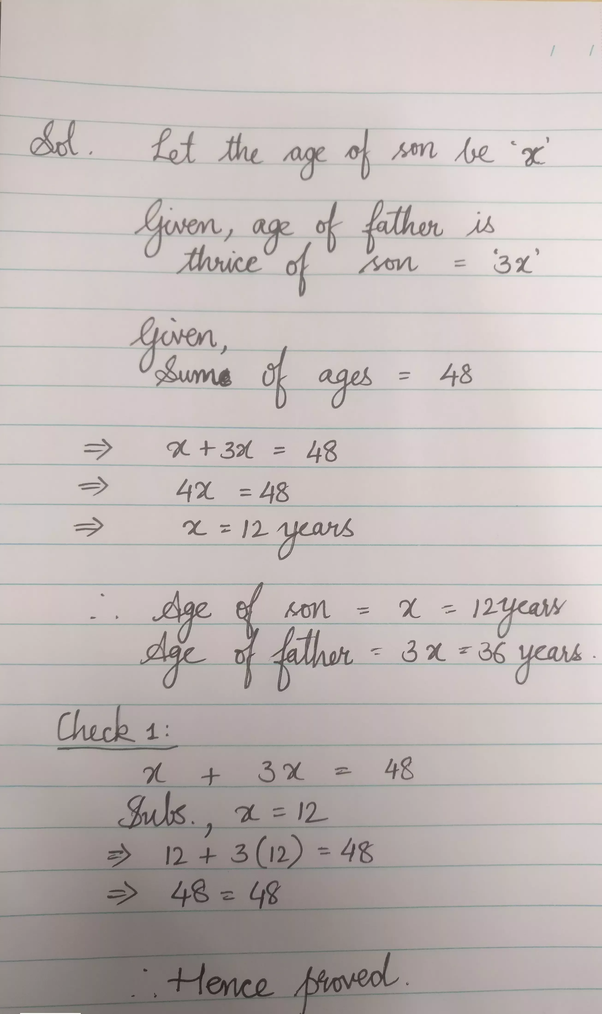 / /
Sol. Let the age of son be 'x'
Given, age of father is
thrice of son = '3x'
Given,
Sum of ages = 48
⇒ x + 3x = 48
⇒ 4x = 48
⇒ x = 12 years
∴ Age of son = x = 12years
Age of father = 3x = 36 years.
Check 1:
x + 3x = 48
Subs., x = 12
⇒ 12 + 3(12) = 48
⇒ 48 = 48
∴ Hence proved.